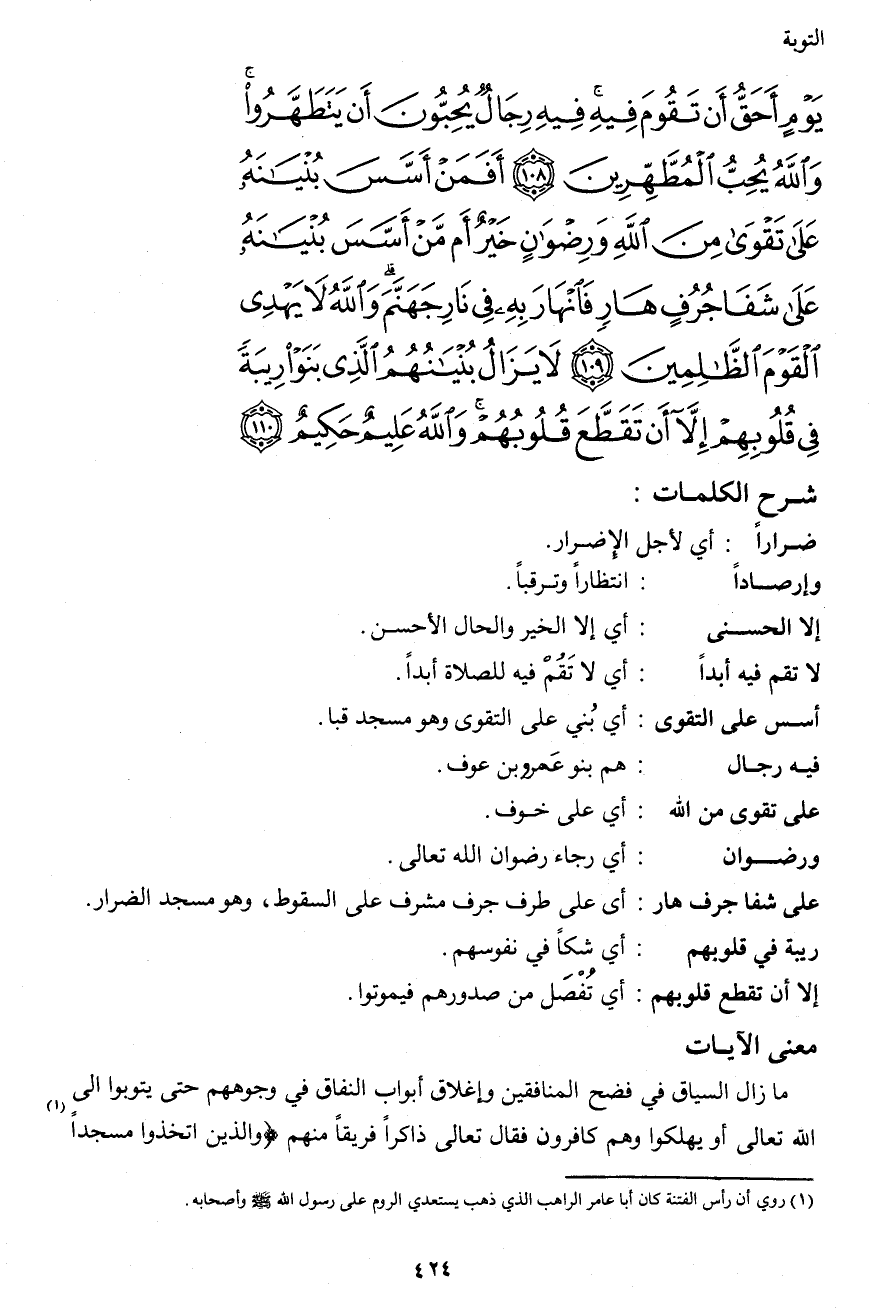 التوبة
يَوۡمٍ أَحَقُّ أَن تَقُومَ فِيهِۚ فِيهِ رِجَالٌ يُحِبُّونَ أَن يَتَطَهَّرُواْۚ
وَٱللَّهُ يُحِبُّ ٱلۡمُطَّهِّرِينَ ١٠٨ أَفَمَنۡ أَسَّسَ بُنۡيَٰنَهُۥ
عَلَىٰ تَقۡوَىٰ مِنَ ٱللَّهِ وَرِضۡوَٰنٍ خَيۡرٌ أَم مَّنۡ أَسَّسَ بُنۡيَٰنَهُۥ
عَلَىٰ شَفَا جُرُفٍ هَارٍ فَٱنۡهَارَ بِهِۦ فِي نَارِ جَهَنَّمَۗ وَٱللَّهُ لَا يَهۡدِي
ٱلۡقَوۡمَ ٱلظَّٰلِمِينَ ١٠٩ لَا يَزَالُ بُنۡيَٰنُهُمُ ٱلَّذِي بَنَوۡاْ رِيبَةً
فِي قُلُوبِهِمۡ إِلَّآ أَن تَقَطَّعَ قُلُوبُهُمۡۗ وَٱللَّهُ عَلِيمٌ حَكِيمٌ ١١٠
شـرح الكلمـات :
ضـراراً : أي لأجل الإضـرار.
وإرصـاداً : انتظاراً وتـرقباً.
إلا الحسـنى : أي إلا الخير والحال الأحسـن.
لا تقم فيه أبداً : أي لا تَقُمْ فيه للصلاة أبداً.
أسـس على التقوى : أي بُني على التقوى وهو مسجد قبا.
فيـه رجـال : هم بنو عَمرو بن عوف.
على تقوى من الله : أي على خـوف.
ورضــوان : أي رجاء رضوان الله تعالى.
على شفا جرف هار : أى على طرف جرف مشرف على السقوط، وهو مسجد الضرار.
ريبة في قلوبهم : أي شكاً في نفوسهم.
إلا أن تقطع قلوبهم : أي تُفْصَل من صدورهم فيموتوا.
معنى الآيـات
ما زال السياق في فضح المنافقين وإغلاق أبواب النفاق في وجوههم حتى يتوبوا الى
الله تعالى أو يهلكوا وهم كافرون فقال تعالى ذاكراً فريقاً منهم ﴿والذين اتخذوا مسجداً (١)
(١) روي أن رأس الفتنة كان أبا عامر الراهب الذي ذهب يستعدي الروم على رسول الله ﷺ وأصحابه.
٤٢٤